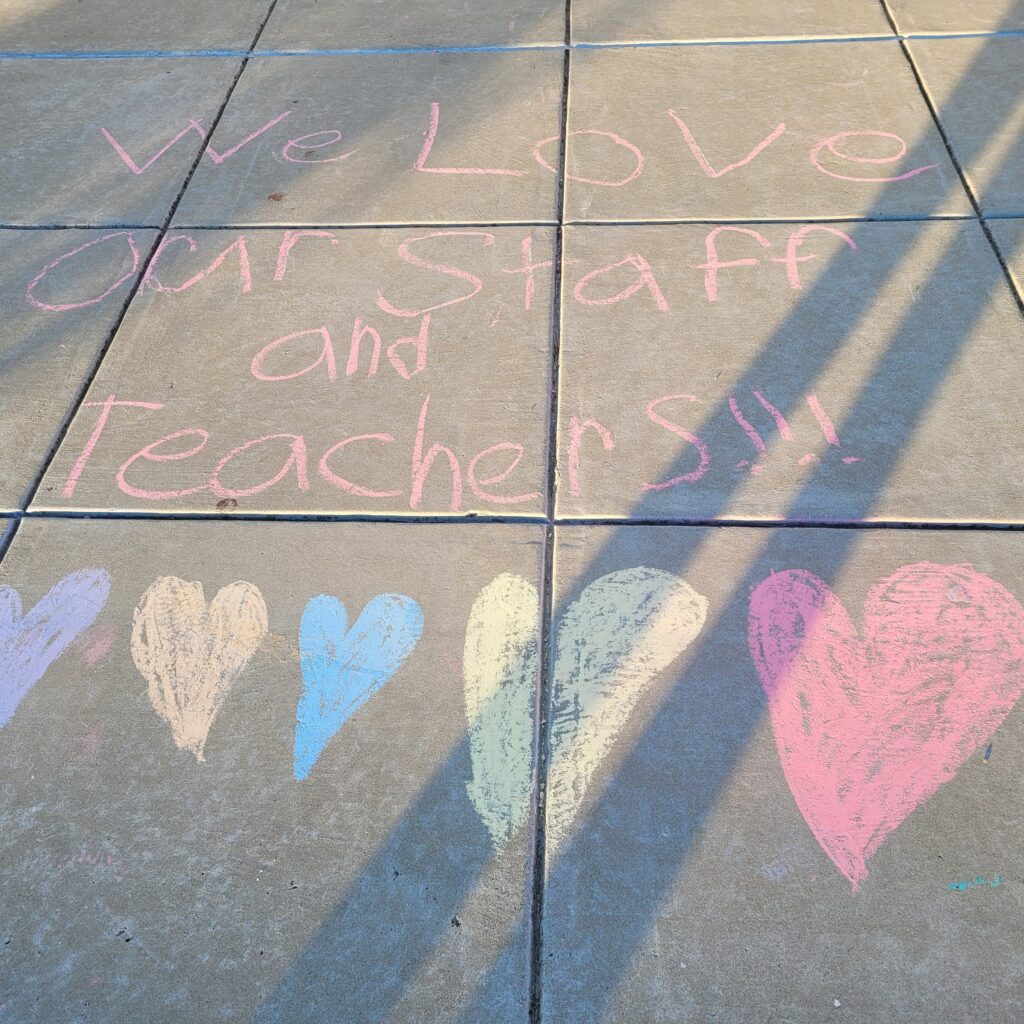 We Love
Our Staff
and
Teachers!!!